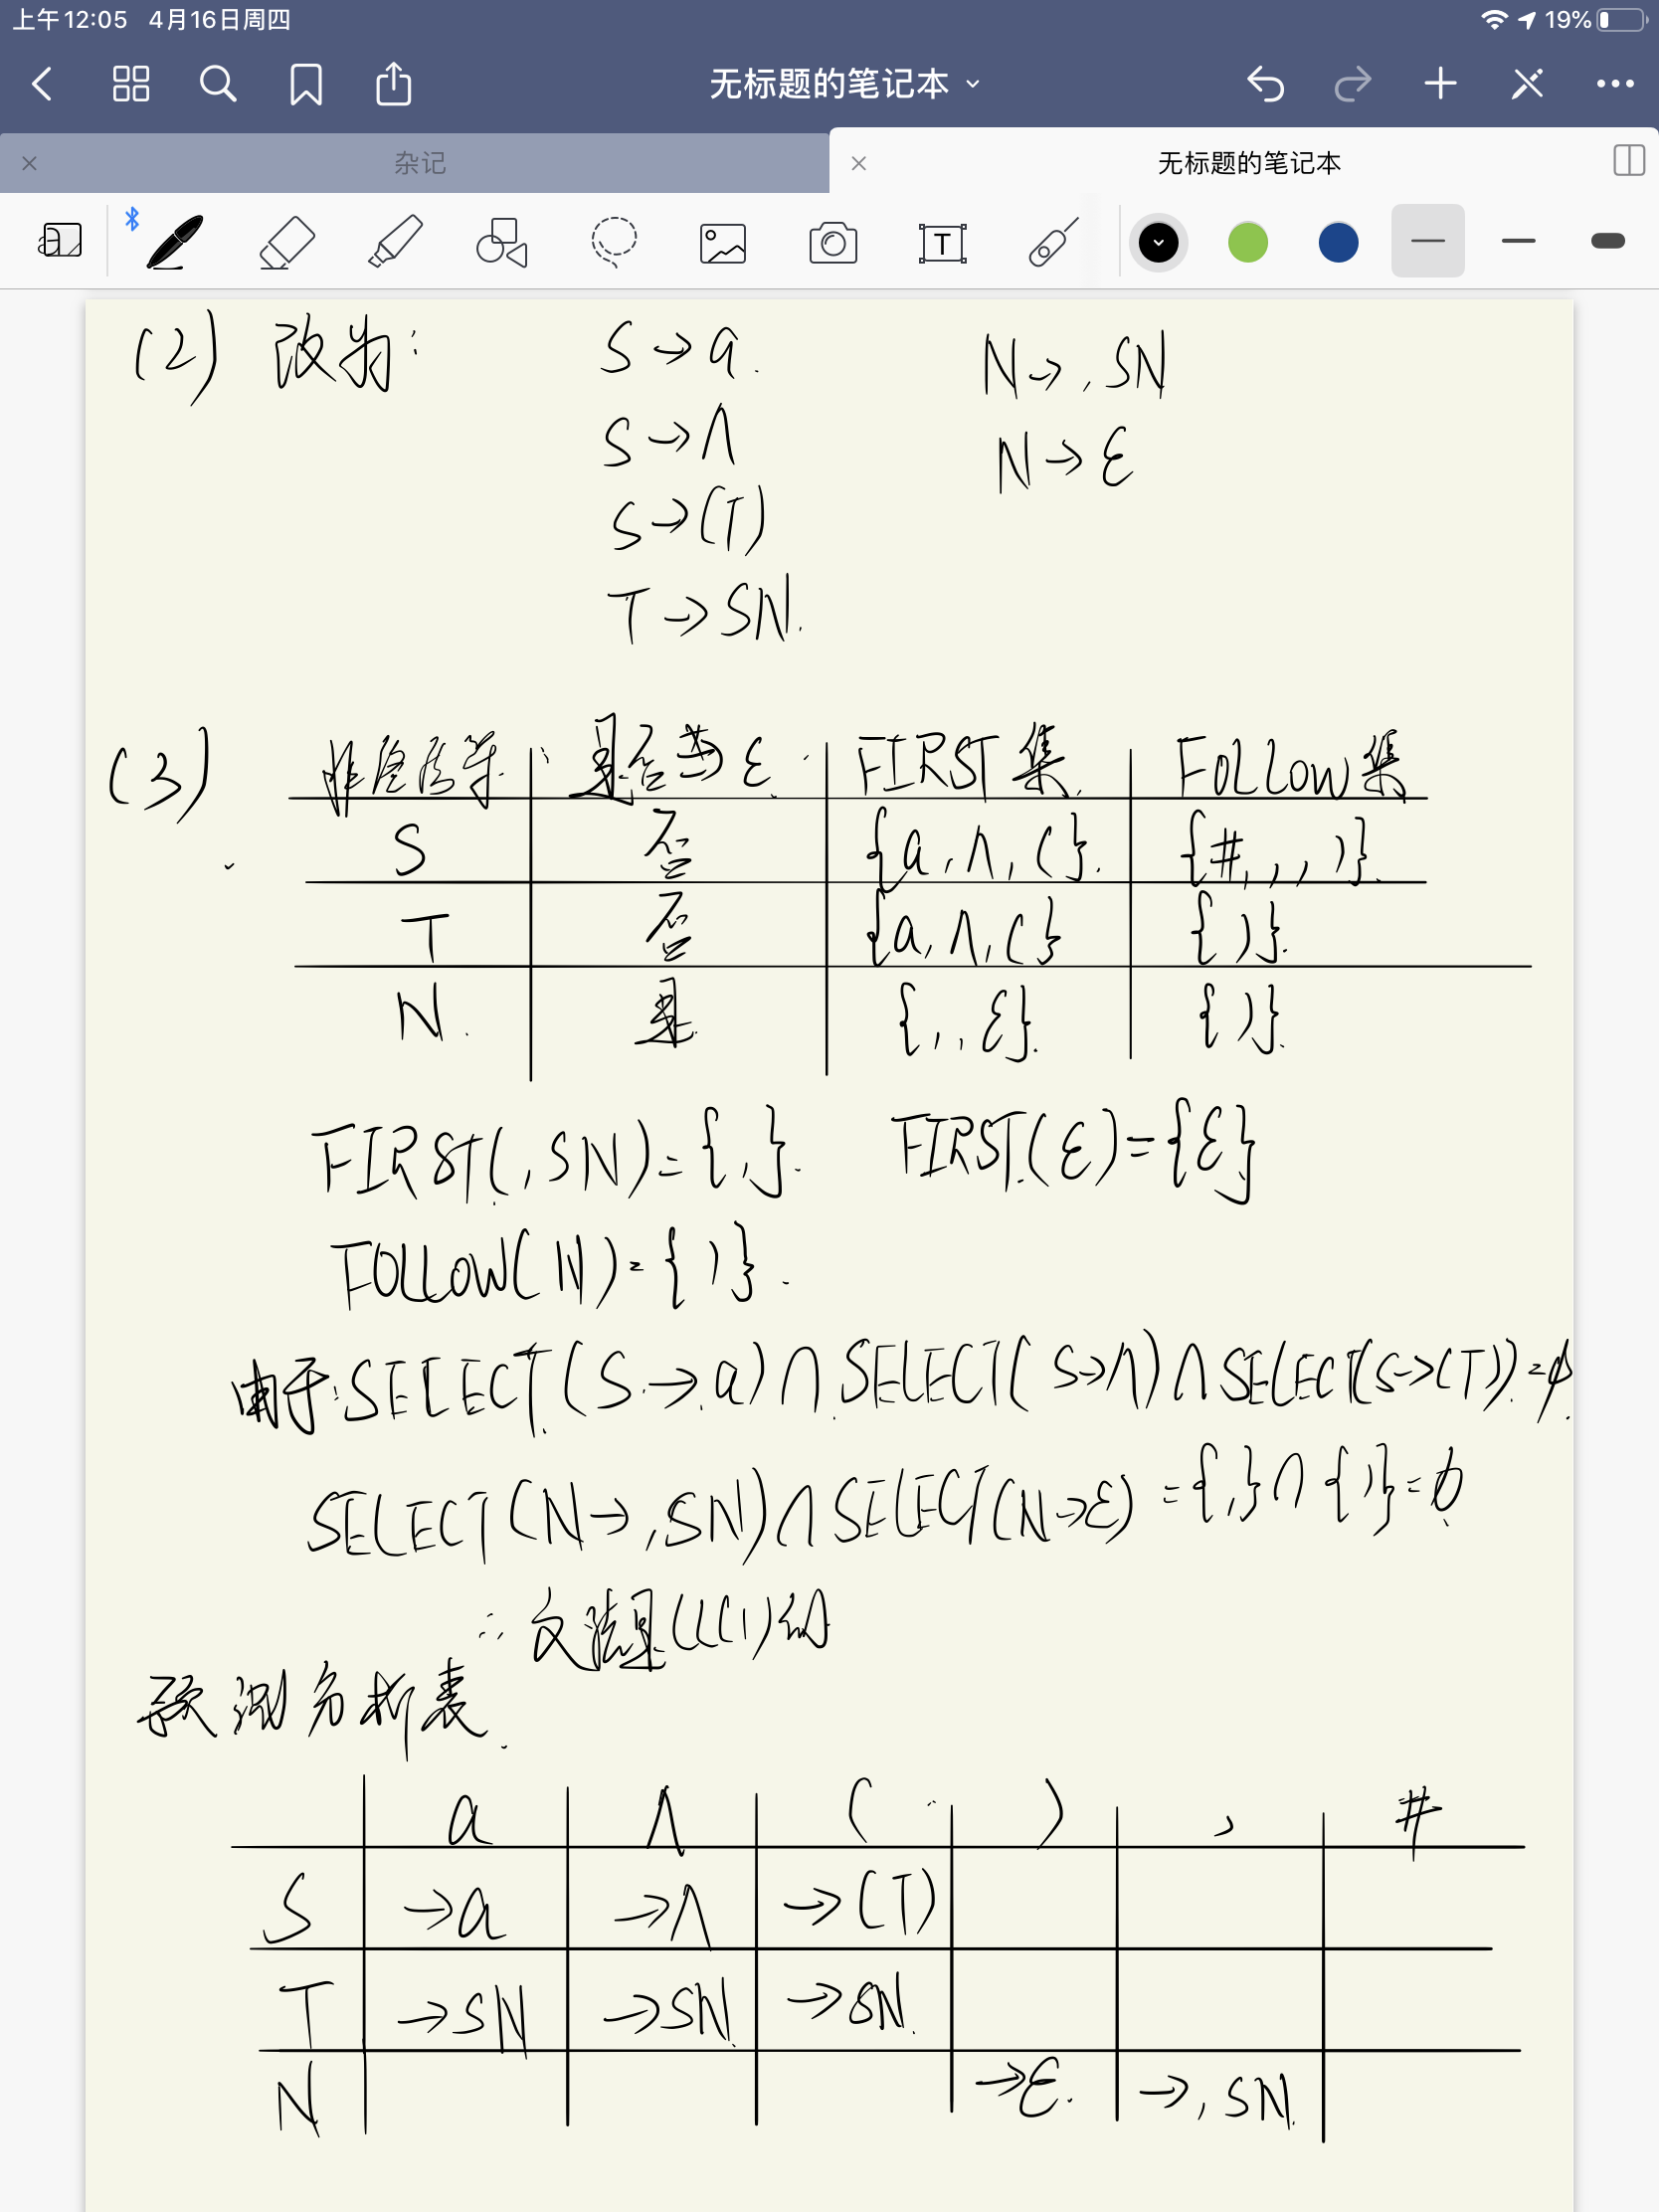 上午12:05 4月16日周四 19%
无标题的笔记本
杂记 无标题的笔记本
(2) 改为: S→a. N→,SN
S→Λ N→ε
S→(T)
T→SN.
(3) 非终结符 是否→ε FIRST集 FOLLOW集
S 否 {a,Λ,(}. {#,,,)}.
T 否 {a,Λ,(} {)}.
N. 是 {,,ε}. {)}.
FIRST(,SN)={,}. FIRST(ε)={ε}
FOLLOW(N)={)}.
由于:SELECT(S→a)∩SELECT(S→Λ)∩SELECT(S→(T))=ϕ.
SELECT(N→,SN)∩SELECT(N→ε)={,}∩{)}=ϕ.
∴文法是LL(1)的
预测分析表.
a Λ ( ) , #
S →a →Λ →(T)
T →SN →SN. →SN.
N →ε. →,SN.